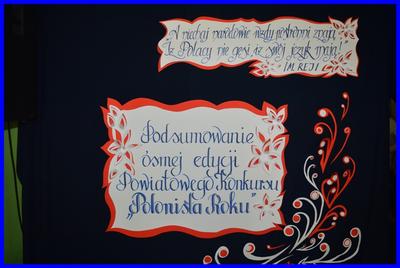 A niechaj narodowie wżdy postronni znają
Iż Polacy nie gęsi iż swój język mają!
/M. REJ/
Podsumowanie
ósmej edycji
Powiatowego Konkursu
„Polonista Roku”